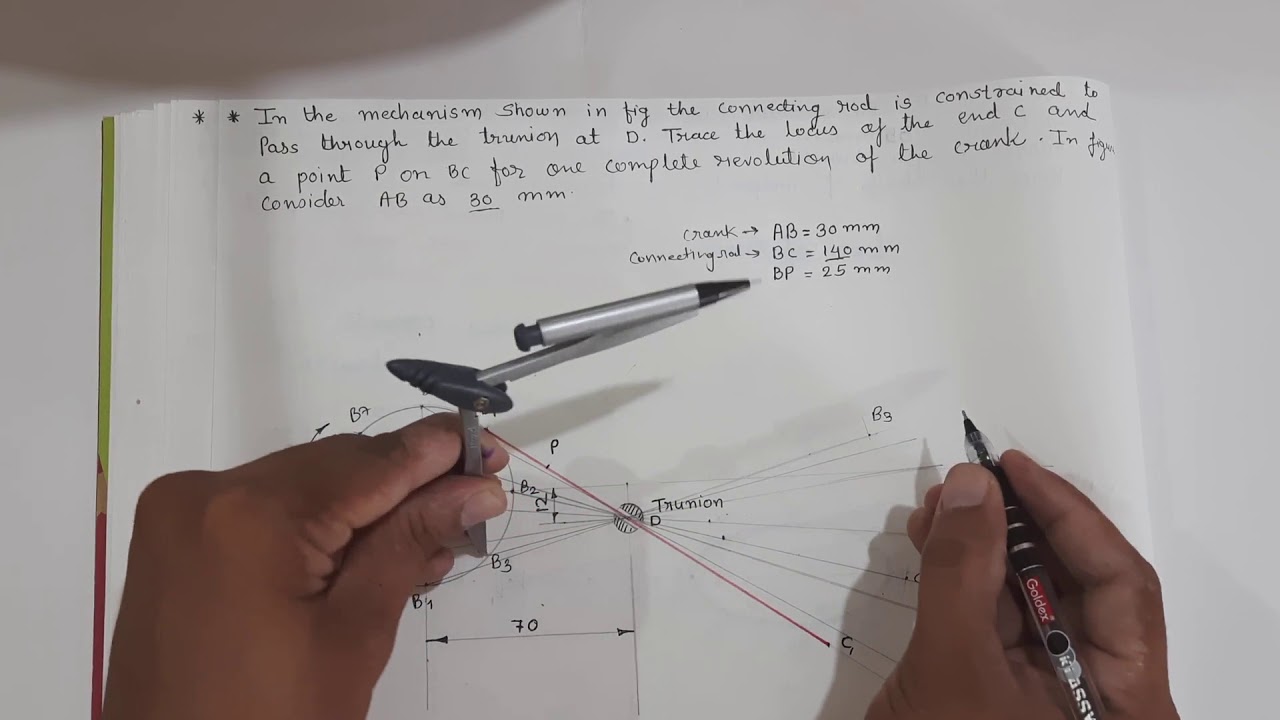 * * In the mechanism shown in fig the connecting rod is constrained to
Pass through the trunion at D. Trace the locus of the end C and
a point P on BC for one complete revolution of the crank. In figu
consider AB as 30 mm.
crank → AB = 30 mm
Connecting rod → BC = 140 mm
BP = 25 mm
B7
P
B3
B2
12
Trunion
D
B3
B4
70
C1
Goldex
KLASSY